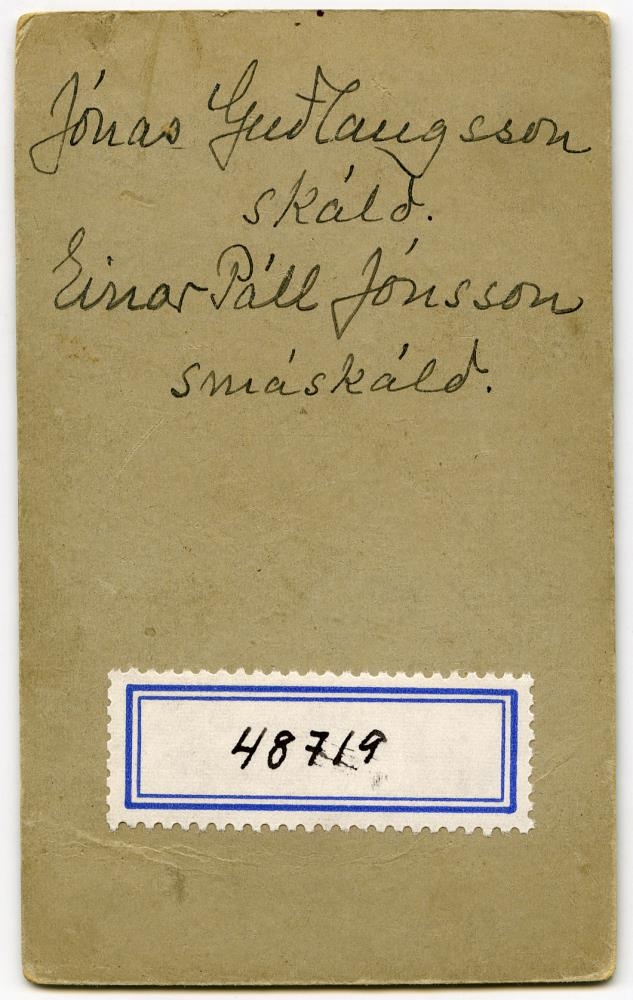 Jónas Guðlaugsson
skáld.
Einar Páll Jónsson
smáskáld.
48719